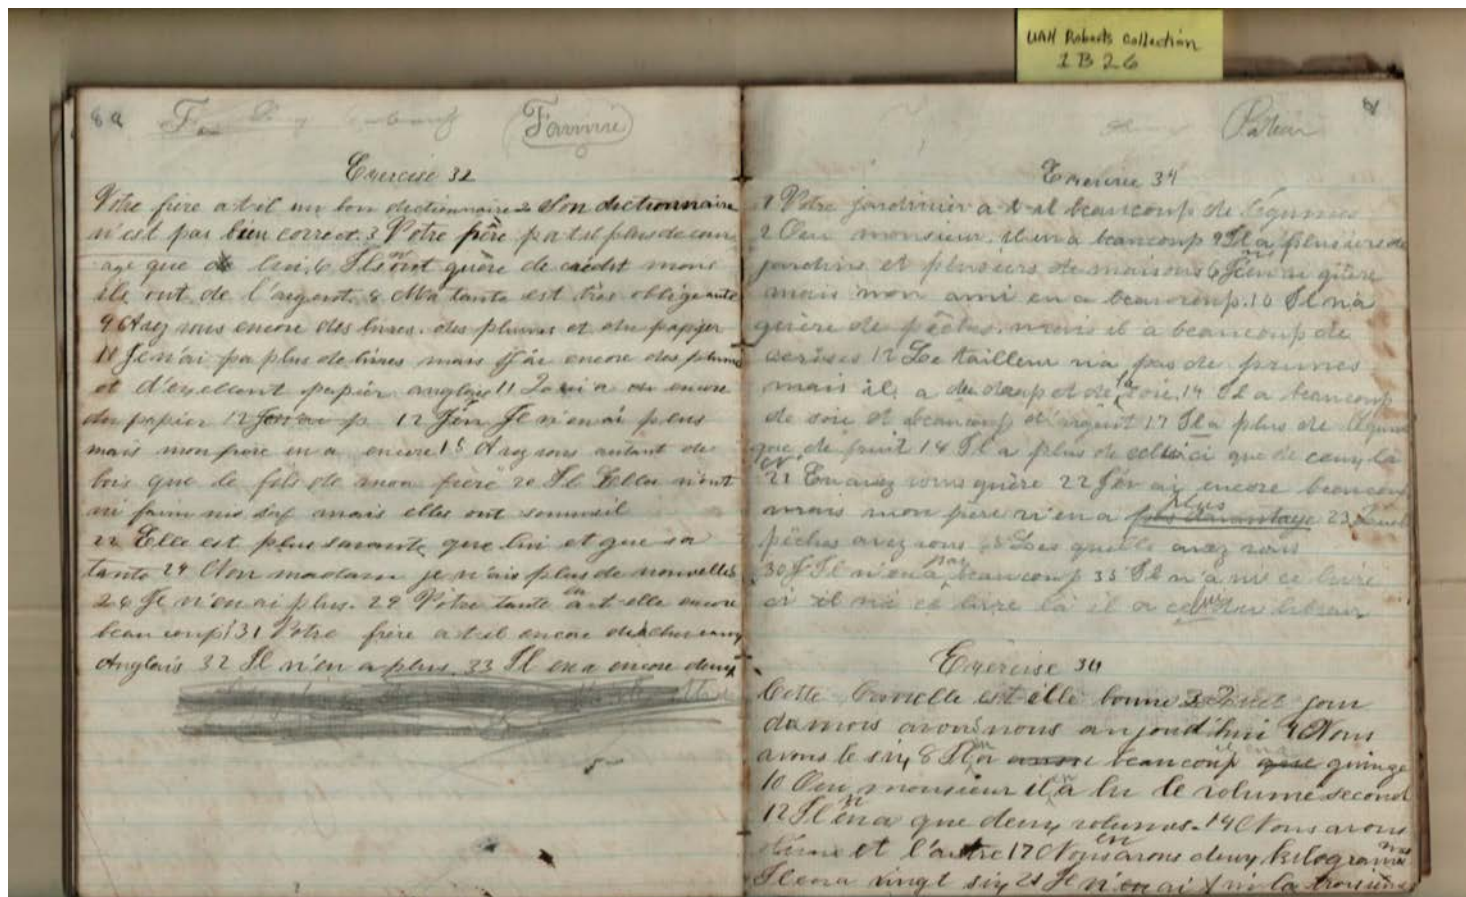 UAH Roberts Collection
1B26
80
Exercise 32
Votre frère a t-il un bon dictionnaire 2 Son dictionnaire
n'est pas bien correct. 3 Votre frère a til plus de cour
age que lui. 6 Ils n'ont guère de crédit mais
ils ont de l'argent. 8 Ma tante est très obligeante
9 Avez vous encore des livres. des plumes et du papier
10 Je n'ai pa plus de livres mais j'ai encore des plumes
et d'excellent papier anglais 11 encore
du papier 12 Jen'ai p 12 J'en Je n'en ai plus
mais mon frère en a encore 18 Avez vous autant de
bois que le fils de mon frère 20 Elles n'ont
ni faim ni soif mais elles ont sommeil
22 Elle est plus savante que lui et que sa
tante 24 Non madam je n'ais plus de nouvelles
26 Je n'en ai plus. 29 Votre tante en a-t-elle encore
beaucoup 31 Votre frère a t-il encore des chevaux
Anglais 32 Il n'en a plus. 33 Il en a encore deux
81
Exercise 34
1 Votre jardinier a t-il beaucoup de légumes
2 Oui monsieur. il en a beaucoup Il a plusieurs de
jardins et plusieurs de maisons 6 Je n'en ai guère
mais mon ami en a beaucoup. 10 Il n'a
guère de pêches. mais il a beaucoup de
cerises 12 Le tailleur n'a pas de prunes
mais il a du drap et de la soie. 14 Il a beaucoup
de soie et beaucoup d'argent 17 Il a plus de légumes
que de fruit 18 Il a plus de celui ci que de ceux là
21 En avez vous guère 22 J'en ai encore beaucoup
mais mon père n'en a plus pas davantage 23 Quels
pêches avez vous Les quelles avez vous
30 Il n'en a pas beaucoup 33 Il n'a ni ce livre
ci il n'a ce livre là il a celui du
Exercise 34
Cette est elle bonne 3 Quel jour
du mois avons nous aujourd'hui 4 Nous
avons le six 8 Il en a beaucoup que quinze
10 Oui monsieur il en a lu le volume second
12 Il n'en a que deux volumes. 14 Nous avons
l'une et l'autre 17 Nous en avons deux kilogrammes
Il en a vingt six 21 Je n'en ai ni la troisième